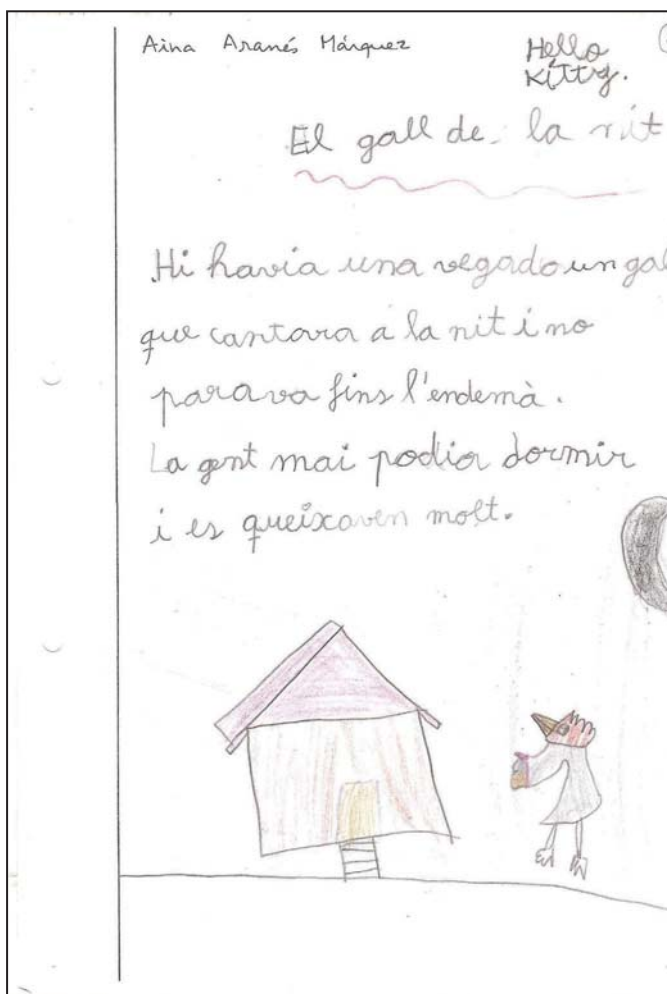 Aina Aranés Márquez
Hello
Kitty.
El gall de la nit
Hi havia una vegada un gal
que cantava a la nit i no
parava fins l'endemà.
La gent mai podia dormir
i es queixaven molt.